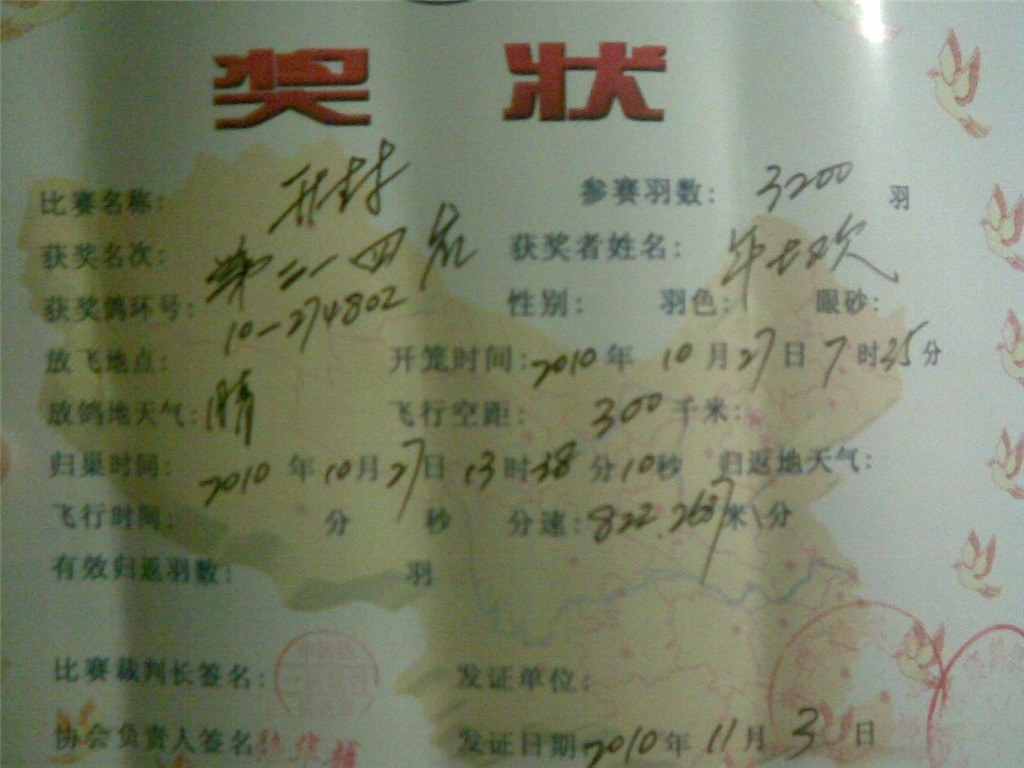 奖 状
比赛名称: 开封 参赛羽数: 3200 羽
获奖名次: 第二一四名 获奖者姓名:
获奖鸽环号: 10-274802 性别: 羽色: 眼砂:
放飞地点: 开笼时间: 2010 年 10 月 27 日 7 时 35 分
放鸽地天气: 晴 飞行空距: 300 千米:
归巢时间: 2010 年 10 月 27 日 13 时 38 分 10 秒 归返地天气:
飞行时间: 分 秒 分速: 822.267 米\分
有效归返羽数: 羽
比赛裁判长签名: 发证单位:
协会负责人签名: 发证日期 2010 年 11 月 3 日